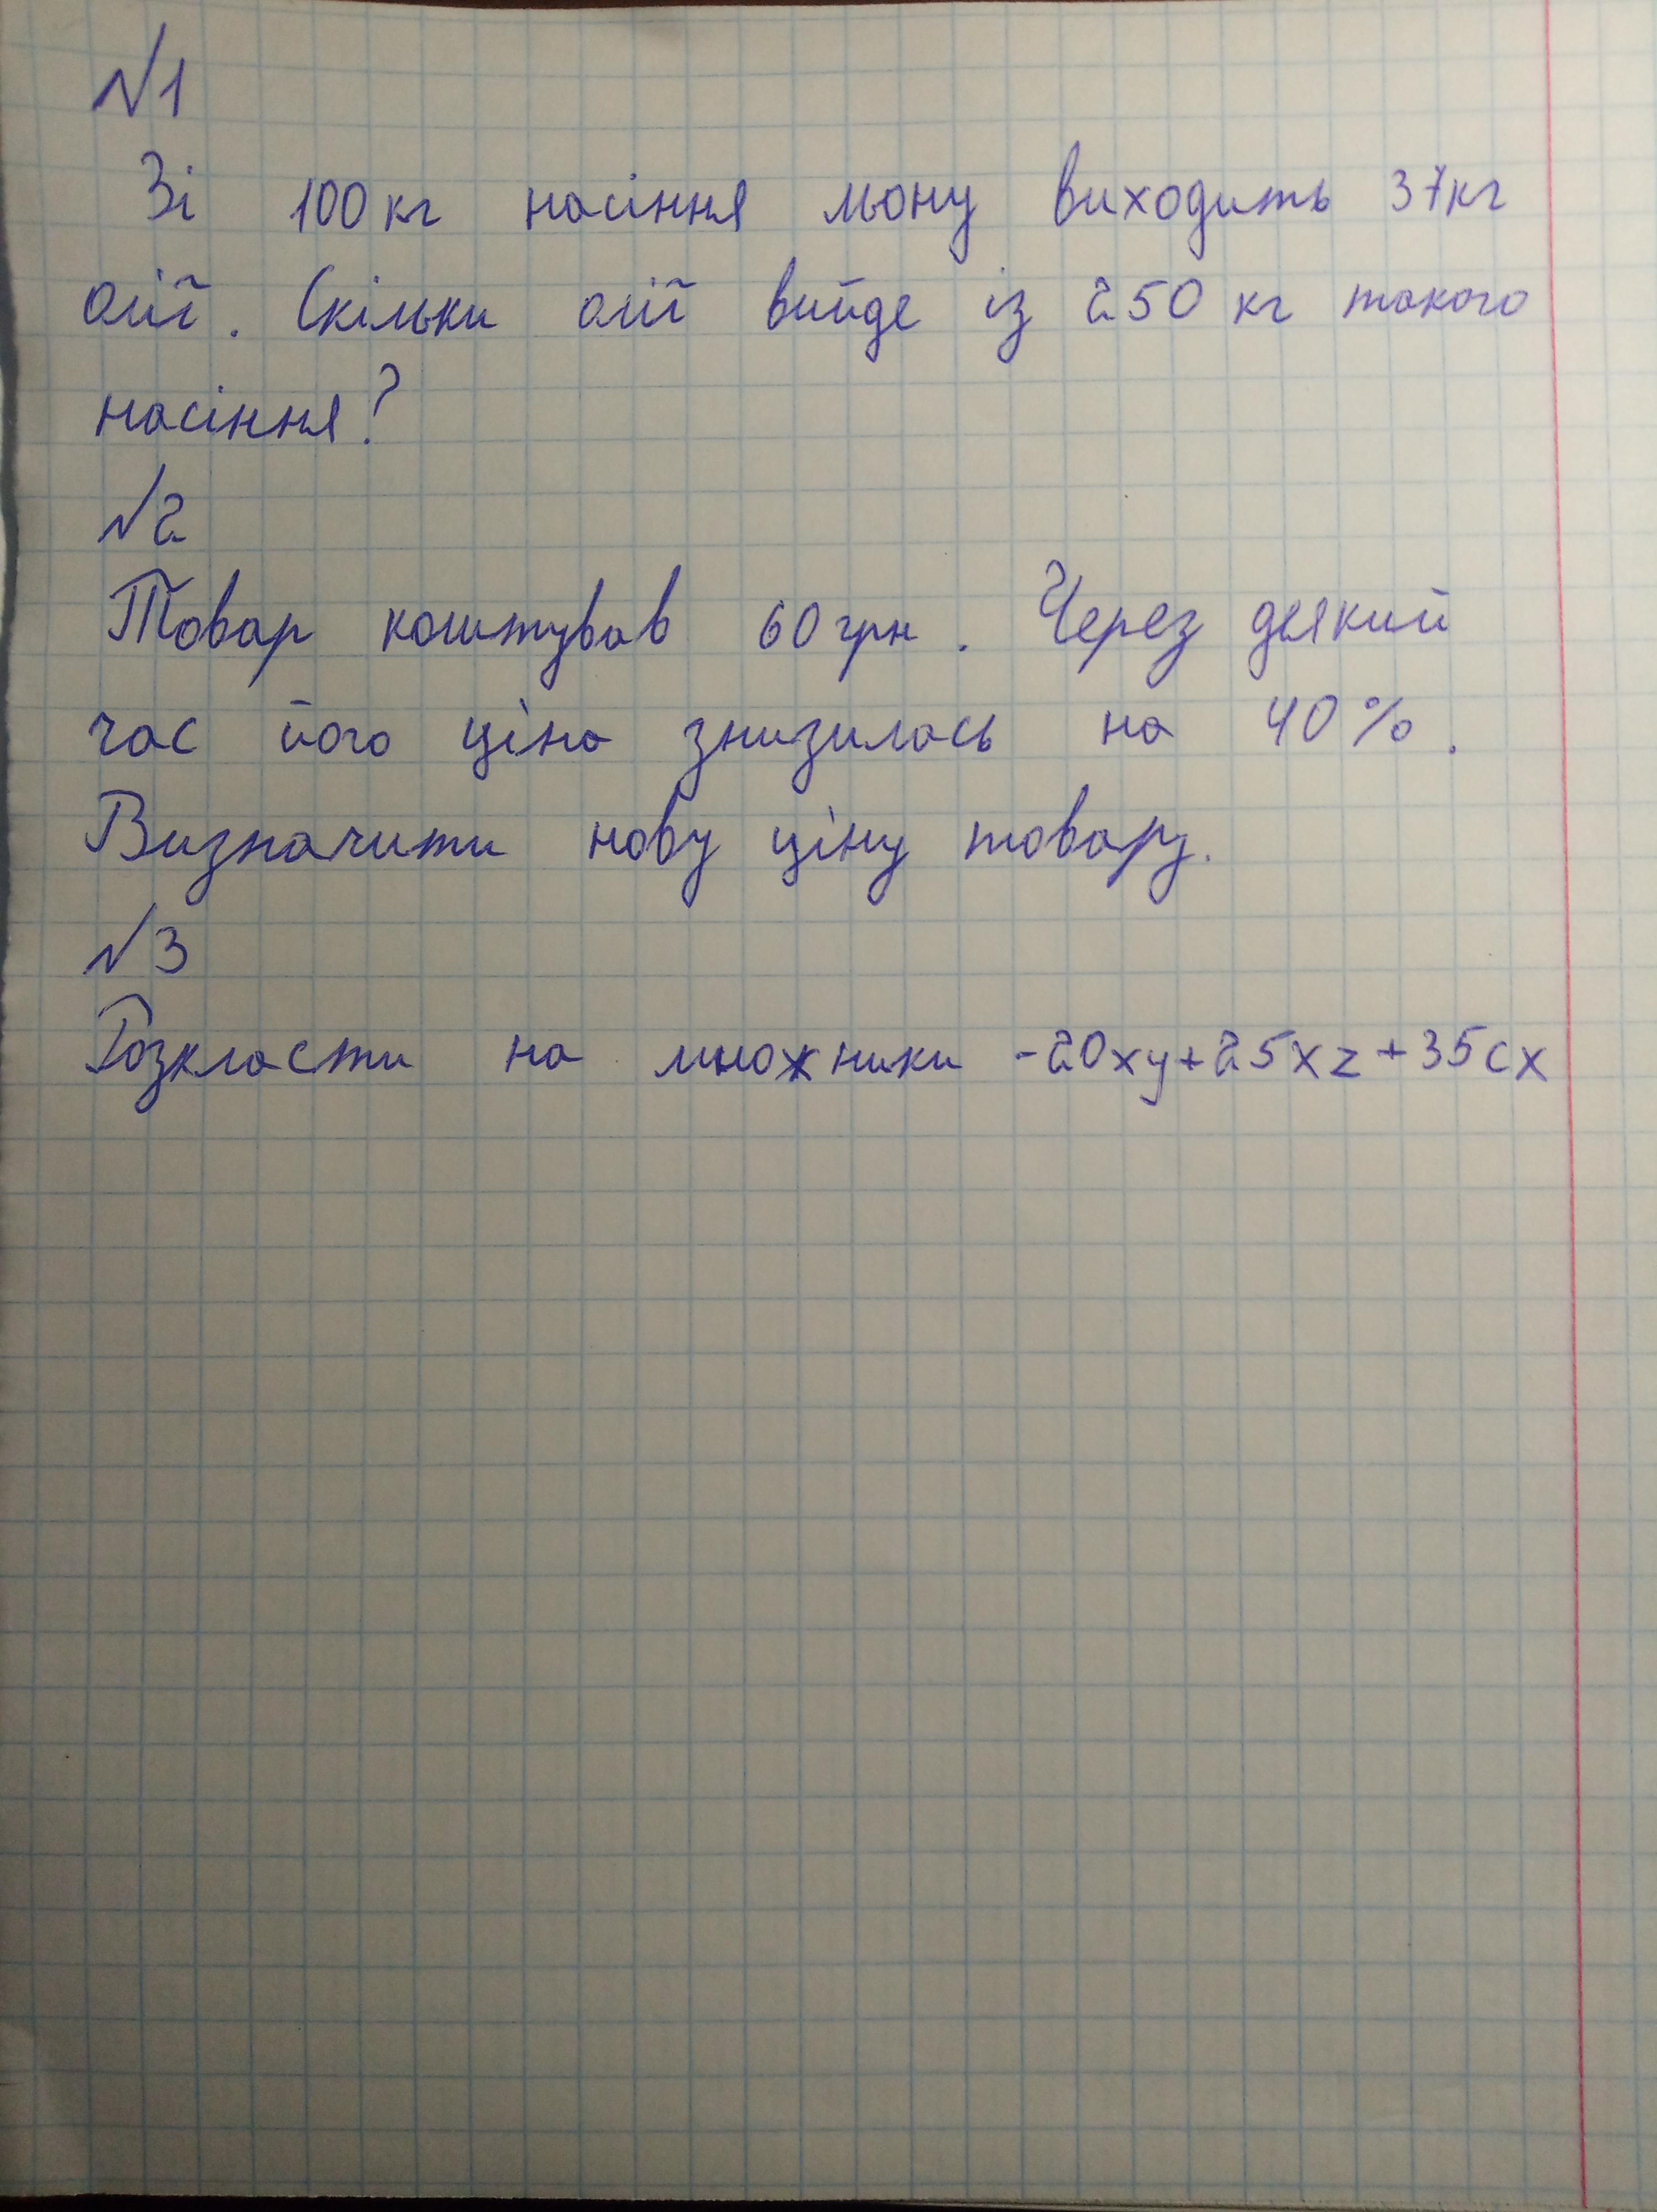 №1
Зі 100 кг насіння льону виходить 37кг
олії. Скільки олії вийде із 250 кг такого
насіння?
№2
Товар коштував 60 грн. Через деякий
час його ціна знизилась на 40%.
Визначити нову ціну товару.
№3
Розкласти на множники -20xy+25xz+35cx